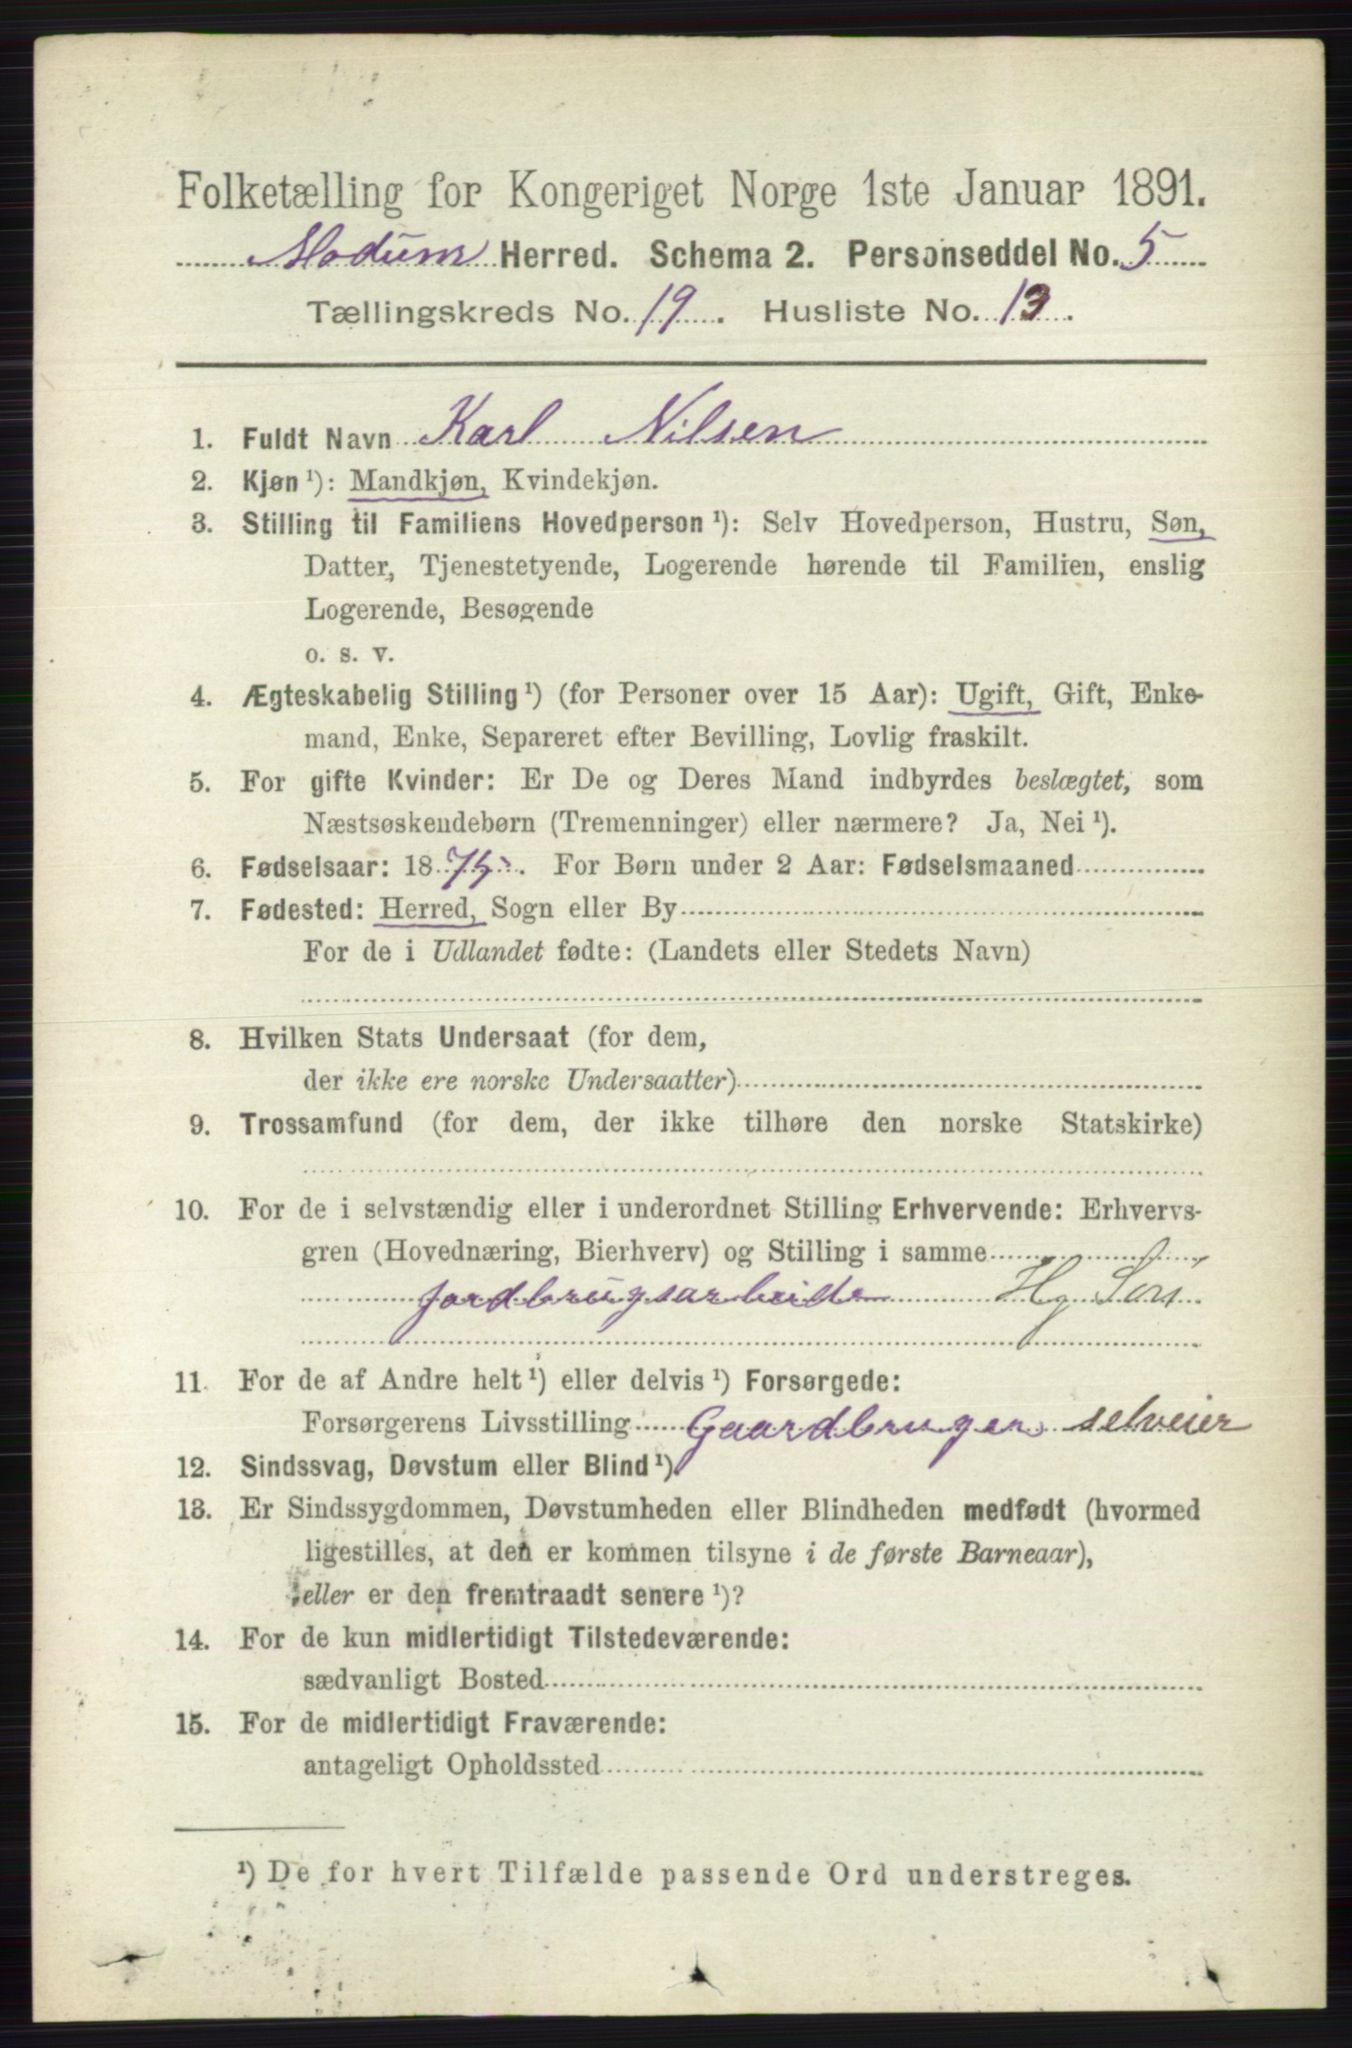 Folketælling for Kongeriget Norge 1ste Januar 1891.
Modum Herred. Schema 2. Personseddel No. 5
Tællingskreds No. 19. Husliste No. 13.
1. Fuldt Navn Karl Nilsen
2. Kjøn ¹): Mandkjøn, Kvindekjøn.
3. Stilling til Familiens Hovedperson ¹): Selv Hovedperson, Hustru, Søn,
Datter, Tjenestetyende, Logerende hørende til Familien, enslig
Logerende, Besøgende
o. s. v.
4. Ægteskabelig Stilling ¹) (for Personer over 15 Aar): Ugift, Gift, Enke-
mand, Enke, Separeret efter Bevilling, Lovlig fraskilt.
5. For gifte Kvinder: Er De og Deres Mand indbyrdes beslægtet, som
Næstsøskendebørn (Tremenninger) eller nærmere? Ja, Nei ¹).
6. Fødselsaar: 1875. For Børn under 2 Aar: Fødselsmaaned
7. Fødested: Herred, Sogn eller By
For de i Udlandet fødte: (Landets eller Stedets Navn)
8. Hvilken Stats Undersaat (for dem,
der ikke ere norske Undersaatter)
9. Trossamfund (for dem, der ikke tilhøre den norske Statskirke)
10. For de i selvstændig eller i underordnet Stilling Erhvervende: Erhvervs-
gren (Hovednæring, Bierhverv) og Stilling i samme
jordbrugsarbeide
11. For de af Andre helt ¹) eller delvis ¹) Forsørgede:
Forsørgerens Livsstilling Gaardbruger selveier
12. Sindssvag, Døvstum eller Blind ¹).
13. Er Sindssygdommen, Døvstumheden eller Blindheden medfødt (hvormed
ligestilles, at den er kommen tilsyne i de første Barneaar),
eller er den fremtraadt senere ¹)?
14. For de kun midlertidigt Tilstedeværende:
sædvanligt Bosted
15. For de midlertidigt Fraværende:
antageligt Opholdssted
¹) De for hvert Tilfælde passende Ord understreges.